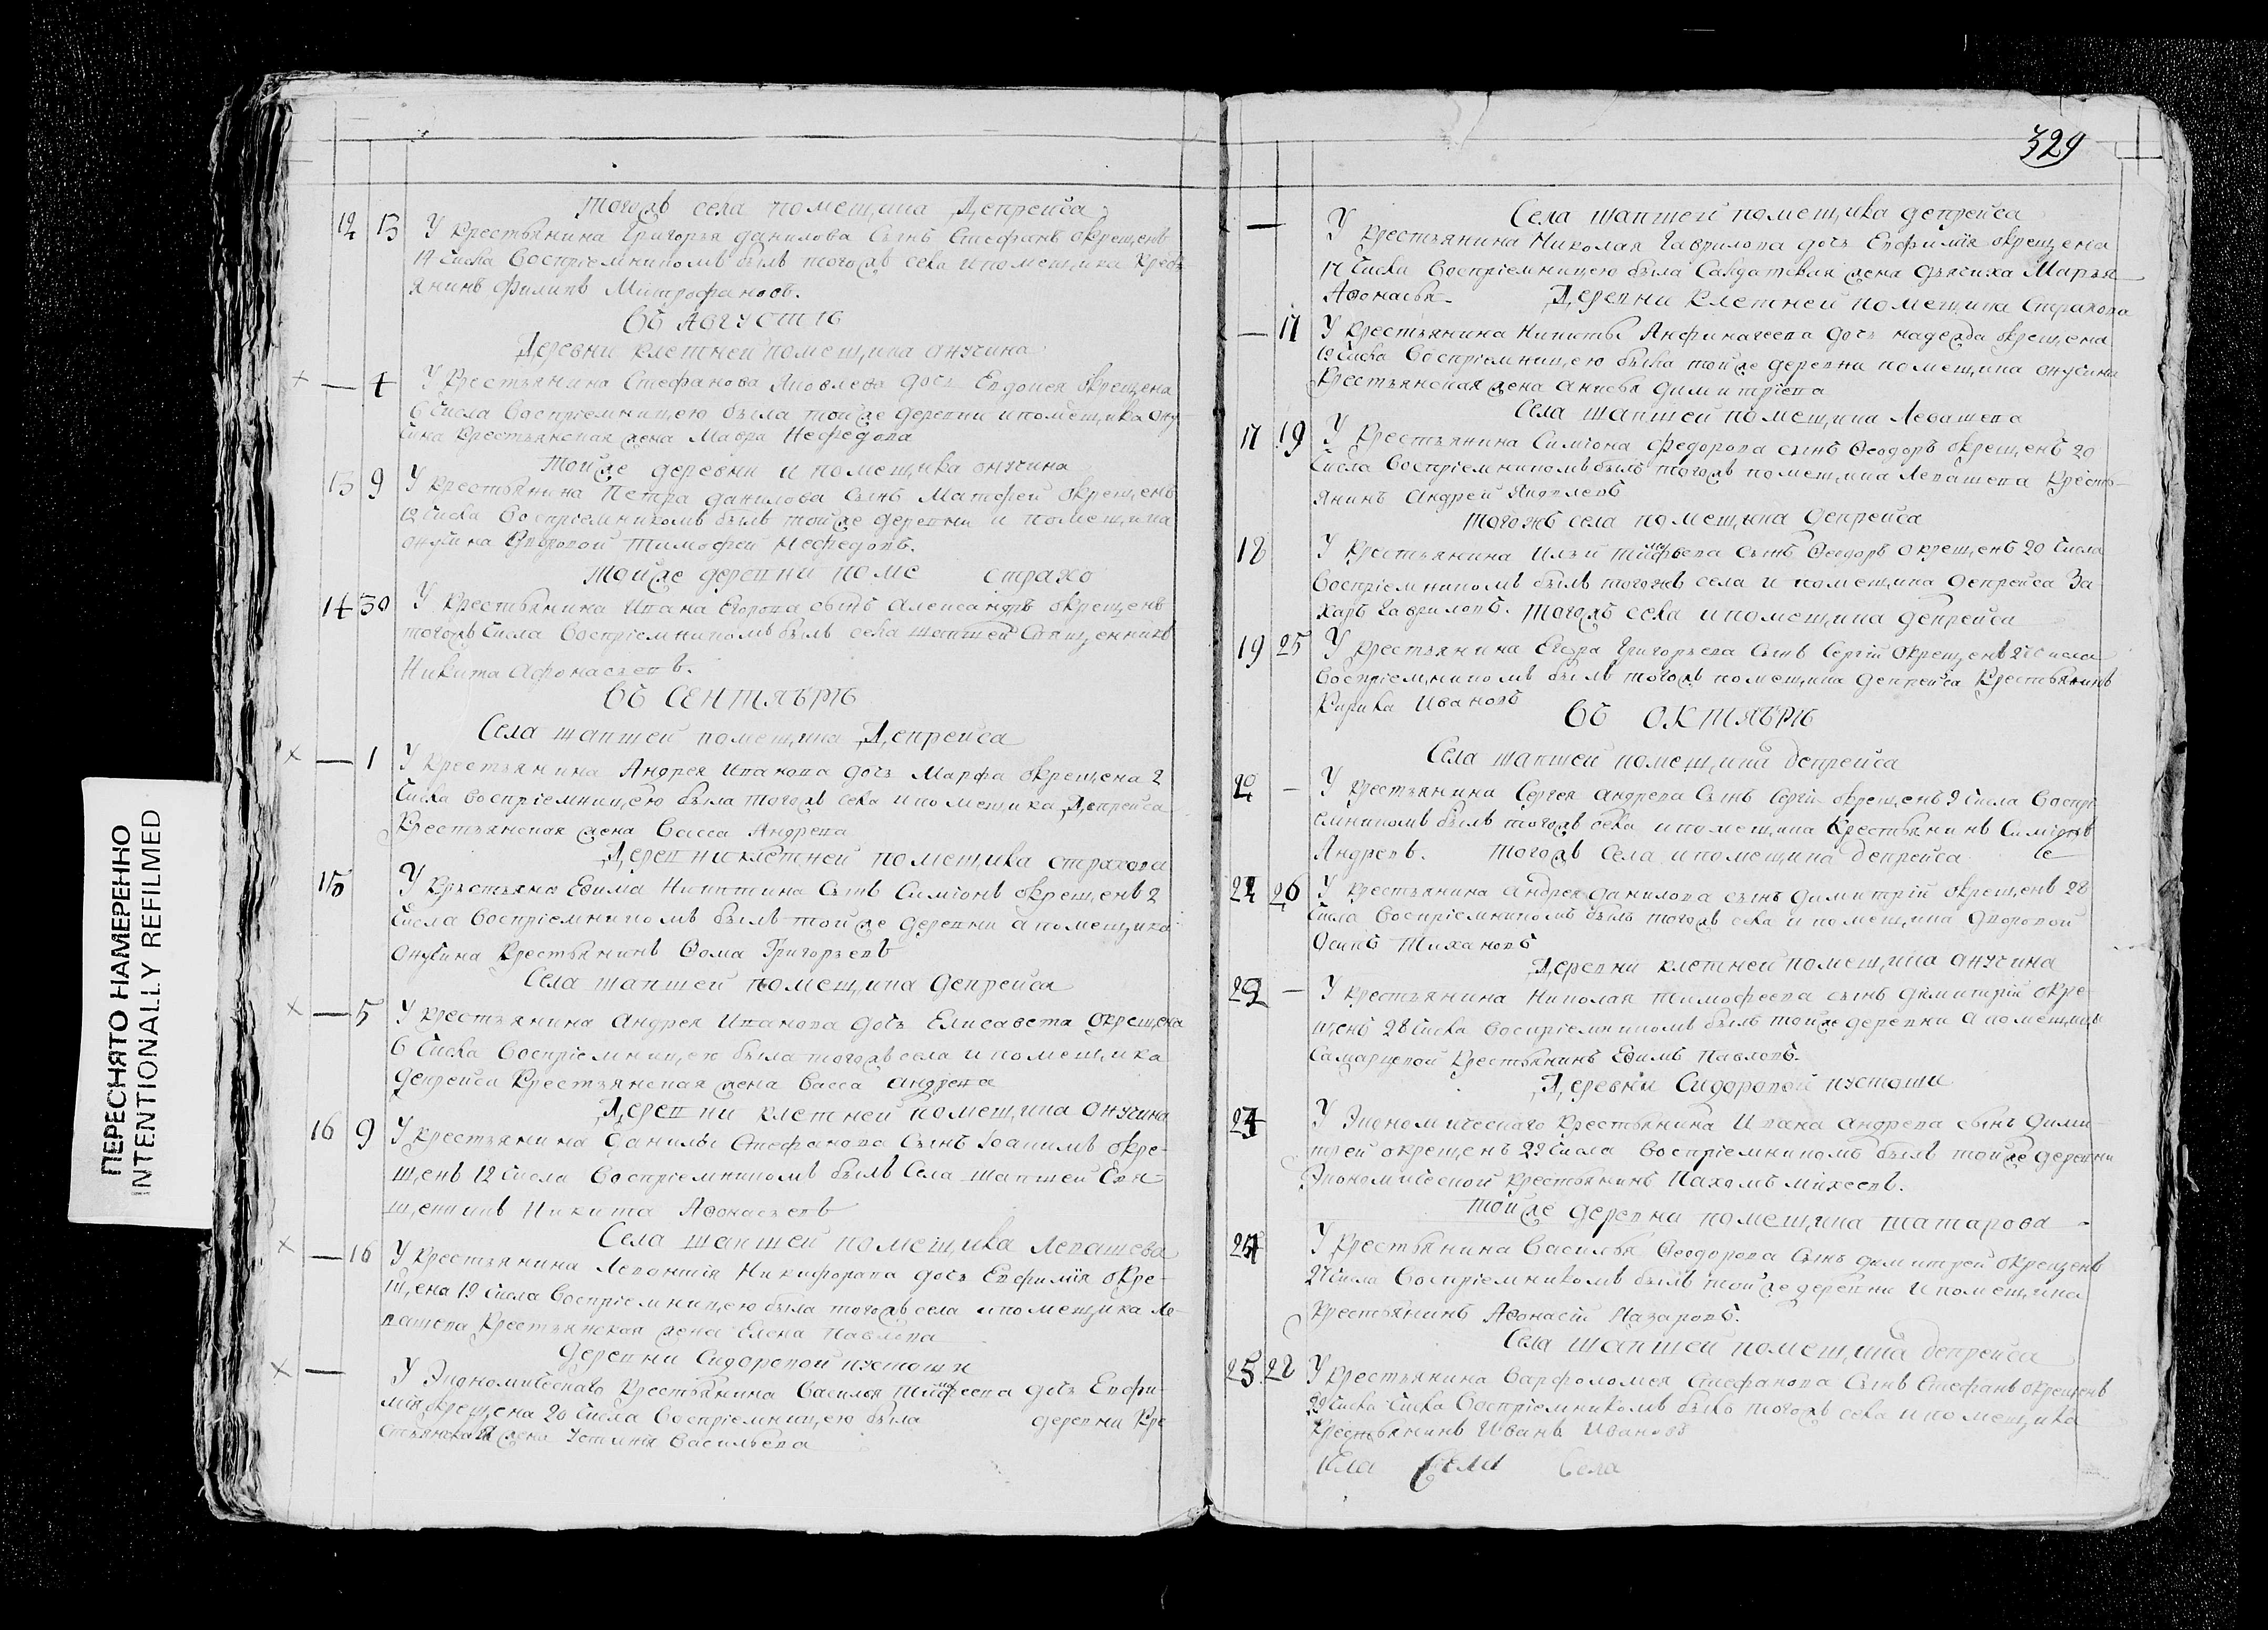 ПЕРЕСНЯТО НАМЕРЕННО
INTENTIONALLY REFILMED
тогожъ села помещика Депрейса
12 13 У крестьянина Григорья данилова сынъ Стефанъ окрещенъ
17 числа воспріемникомъ былъ тогожъ села ипомещика крест
янинъ филипъ Митрофановъ.
въ АВГУСТѢ
Деревни клетней помещика онучина
— 4 У крестьянина Стефанова Яковлева дочь Евдокея окрещена
6 числа воспріемницею была тойже деревни ипомещика ону
чина крестьянская жена Мавра Нефедова
тойже деревни и помещика онучина
13 9 У крестьянина Петра данилова сынъ Матфей окрещенъ
12 числа воспріемникомъ былъ тойже деревни и помещика
онучина дворовой Тимофей Нефедовъ.
тойже деревни поме страхо
14 30 У крестьянина Ивана Егорова сынъ александръ окрещенъ
тогожъ числа воспріемникомъ былъ села шапшей Священникъ
Никита Афонасьевъ.
въ СЕНТЯБРѢ
Села шапшей помещика Депрейса
— 1 У крестьянина Андрея Иванова дочь Марфа окрещена 2
числа воспріемницею была тогожъ села ипомещика Депрейса
крестьянская жена Васса Андрева
Деревни клетней помещика страхова
15 У кръстьяна Ефима Никитина сынъ Симіонъ окрещенъ 2
числа воспріемникомъ былъ тойже деревни а помещика
онучина крестьянинъ Ѳома Григорьевъ
Села шапшей помещика депрейса
— 5 У крестьянина андрея Иванова дочь Елисавета окрещена
6 числа воспріемницею была тогожъ села ипомещика
депрейса крестьянская жена васса андрева
Деревни клетней помещика онучина
16 9 У крестьянина данилы Стефанова сынъ Іоакимъ окре-
щенъ 12 числа воспріемникомъ былъ села шапшей Свя
щенникъ Никита Афонасьевъ
Села шапшей помещика Левашева
— 16 У крестьянина Леонтія Никифорова дочь Евфимія окре-
щена 19 числа воспріемницею была тогожъ села ипомещика Ле-
вашева крестьянская жена Елена павлова
деревни Сидоровой пустоши
— У Экономическаго крестьянина василья тимофеева дочь Евфи-
мія окрещена 20 числа воспріемницею была деревни кре
стьянская жена Устинія васильева
329
Села шапшей помещика депрейса
— У крестьянина Николая Гаврилова дочь Евфимія окрещена
17 числа воспріемницею была Салдатская жена дьячиха Марья
Афонасьв. Деревни клетней помещика Страхова
— 17 У крестьянина Никиты Анфиногеева дочь надежда окрещена
19 числа воспріемницею была тойже деревни помещика онучина
крестьянская жена анисья димитріева
Села шапшей помещика Левашева
17 19 У крестьянина Симіона федорова сынъ Ѳеодоръ окрещенъ 20
числа воспріемникомъ былъ тогожъ помещика Левашева кресть-
янинъ андрей яковлевъ
тогожъ села помещика депрейса
18 У крестьянина Ильи тимофѣева сынъ Ѳеодоръ окрещенъ 20 числа
воспріемникомъ былъ тогожъ села и помещика депрейса За
харъ Гавриловъ. тогожъ села ипомещика депрейса
19 25 У крестьянина Егора Григорьева сынъ Сергій окрещенъ 27 числа
воспріемникомъ былъ тогожъ помещика депрейса крестьянинъ
Кирика Ивановъ
въ ОКТЯБРѢ
Села шапшей помещика депрейса
20 — У крестьянина Сергея андрева сынъ Сергій окрещенъ 9 числа воспрі
емникомъ былъ тогожъ села ипомещика крестьянинъ Симіонъ
Андревъ. тогожъ села ипомещика депрейса се
21 26 У крестьянина андрея данилова сынъ димитрій окрещенъ 28
числа воспріемникомъ былъ тогожъ села и помещика дворовой
Осипъ Тихановъ
Деревни клетней помещика онучина
22 — У крестьянина Николая тимофеева сынъ димитрій окре-
щенъ 28 числа воспріемникомъ былъ тойже деревни а помещицы
самарцевой крестьянинъ Ефимъ Павловъ.
Деревни Сидоровой пустоши
23 У Экономическаго крестьянина Ивана андрева сынъ дими-
трей окрещенъ 29 числа воспріемникомъ былъ тойже деревни
Экономической крестьянинъ Пахомъ михеевъ.
тойже деревни помещика татарова
24 У крестьянина василья Ѳеодорова сынъ димитрей окрещенъ
27 числа воспріемникомъ былъ тойже деревни и помещика
крестьянинъ Афонасій Назаровъ.
Села шапшей помещика депрейса
25 28 У крестьянина варфоломея Стефанова сынъ Стефанъ окрещенъ
29 числа числа воспріемникомъ былъ тогожъ села ипомещика
крестьянинъ Иванъ Ивановъ
села Села Села